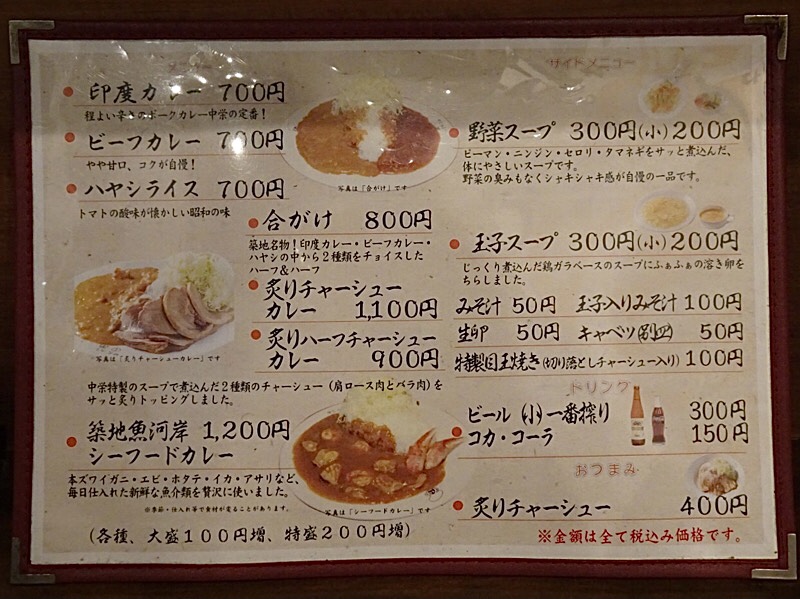 メニュー
印度カレー 700円
程よい辛さのポークカレー中栄の定番！
ビーフカレー 700円
やや甘口、コクが自慢！
ハヤシライス 700円
トマトの酸味が懐かしい昭和の味
写真は「合がけ」です
合がけ 800円
築地名物！印度カレー・ビーフカレー・
ハヤシの中から２種類をチョイスした
ハーフ＆ハーフ
炙りチャーシュー
カレー 1,100円
炙りハーフチャーシュー
カレー 900円
写真は「炙りチャーシューカレー」です
中栄特製のスープで煮込んだ２種類のチャーシュー（肩ロース肉とバラ肉）を
サッと炙りトッピングしました。
築地魚河岸 1,200円
シーフードカレー
本ズワイガニ・エビ・ホタテ・イカ・アサリなど、
毎日仕入れた新鮮な魚介類を贅沢に使いました。
※季節・仕入れ等で食材が変ることがあります。
写真は「シーフードカレー」です
（各種、大盛１００円増、特盛２００円増）
サイドメニュー
野菜スープ 300円(小)200円
ピーマン・ニンジン・セロリ・タマネギをサッと煮込んだ、
体にやさしいスープです。
野菜の臭みもなくシャキシャキ感が自慢の一品です。
玉子スープ 300円(小)200円
じっくり煮込んだ鶏ガラベースのスープにふぁふぁの溶き卵を
ちらしました。
みそ汁 50円 玉子入りみそ汁 100円
生卵 50円 キャベツ(別皿) 50円
特製目玉焼き(切り落としチャーシュー入り) 100円
ドリンク
ビール (小)一番搾り 300円
コカ・コーラ 150円
おつまみ
炙りチャーシュー 400円
※金額は全て税込み価格です。